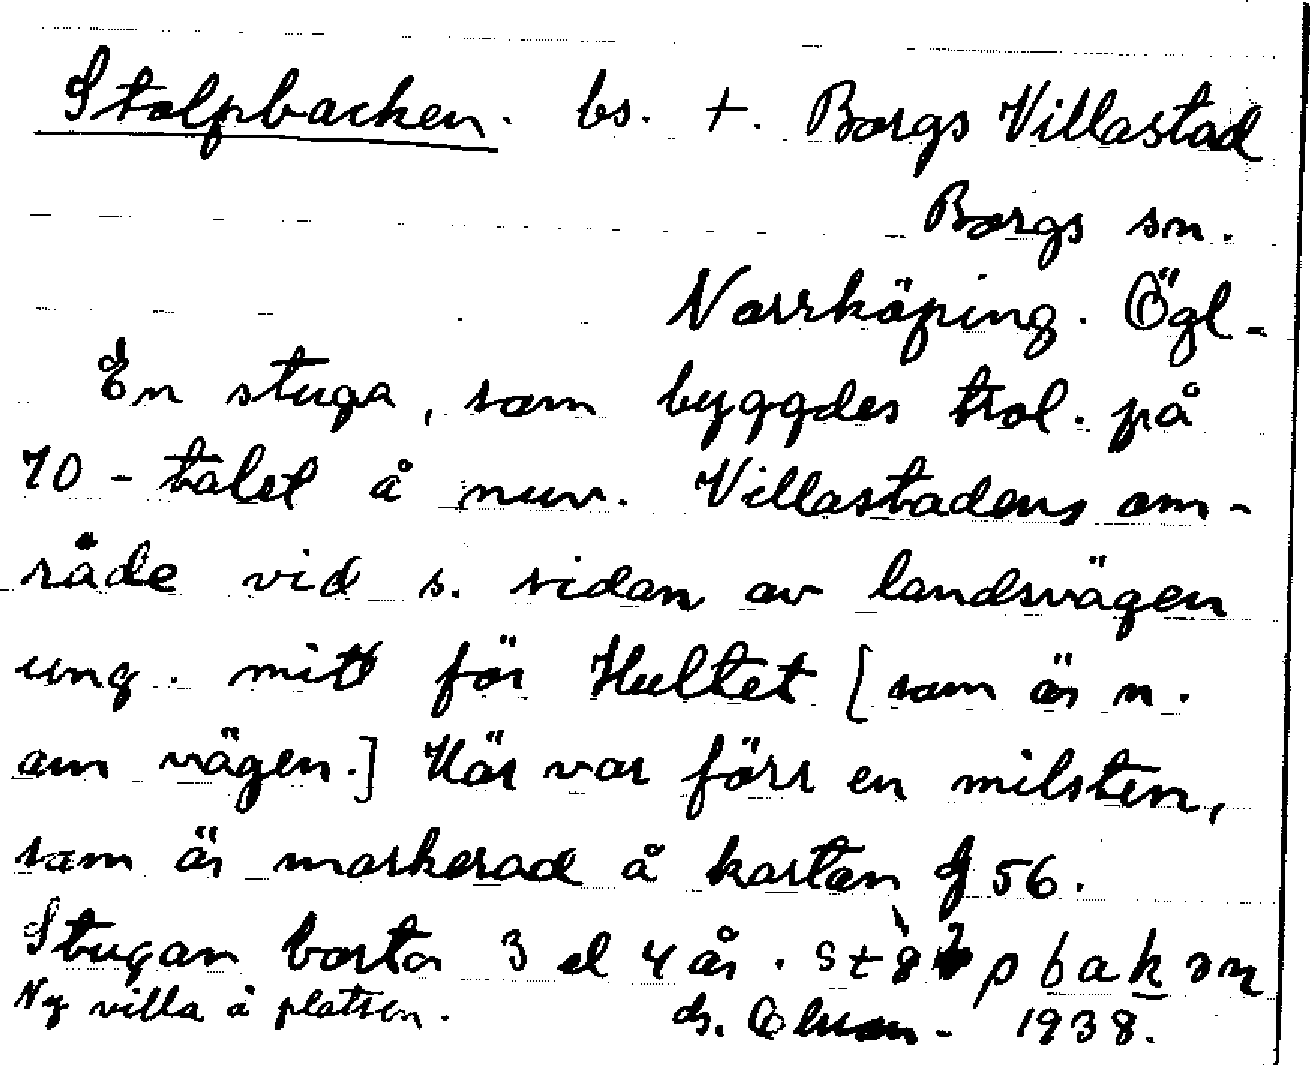 Stolpbacken. bs. +. Borgs Villastad
Borgs sn.
Norrköping. Ögl-
En stuga, som byggdes trol. på
70-talet å nuv. Villastadens om-
råde vid s. sidan av landsvägen
ung. mitt för Hultet [som är n.
om vägen.] Här var förr en milsten,
som är markerad å kartan f 56.
Stugan borta 3 el 4 år.
Ny villa å platsen. 1938.